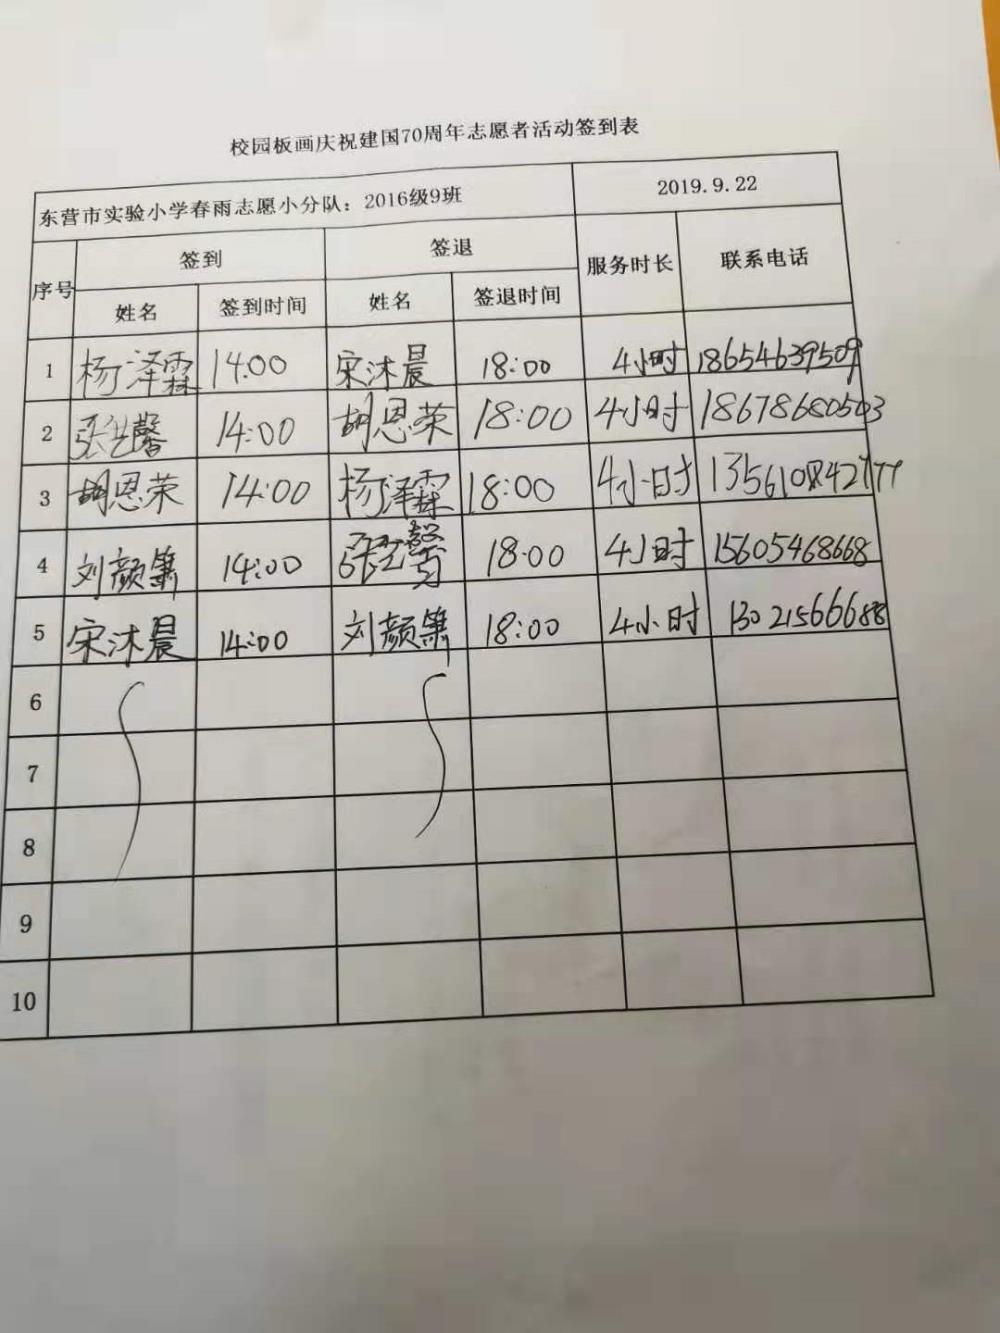 校园板画庆祝建国70周年志愿者活动签到表
东营市实验小学春雨志愿小分队：2016级9班 2019.9.22
序号 签到 签退 服务时长 联系电话
姓名 签到时间 姓名 签退时间
1 杨泽霖 14:00 宋沐晨 18:00 4小时 18654639509
2 张艺馨 14:00 胡恩荣 18:00 4小时 18678680503
3 胡恩荣 14:00 杨泽霖 18:00 4小时
4 刘颜隽 14:00 张艺馨 18:00 4小时 15605468668
5 宋沐晨 14:00 刘颜隽 18:00 4小时 13021566688
6
7
8
9
10